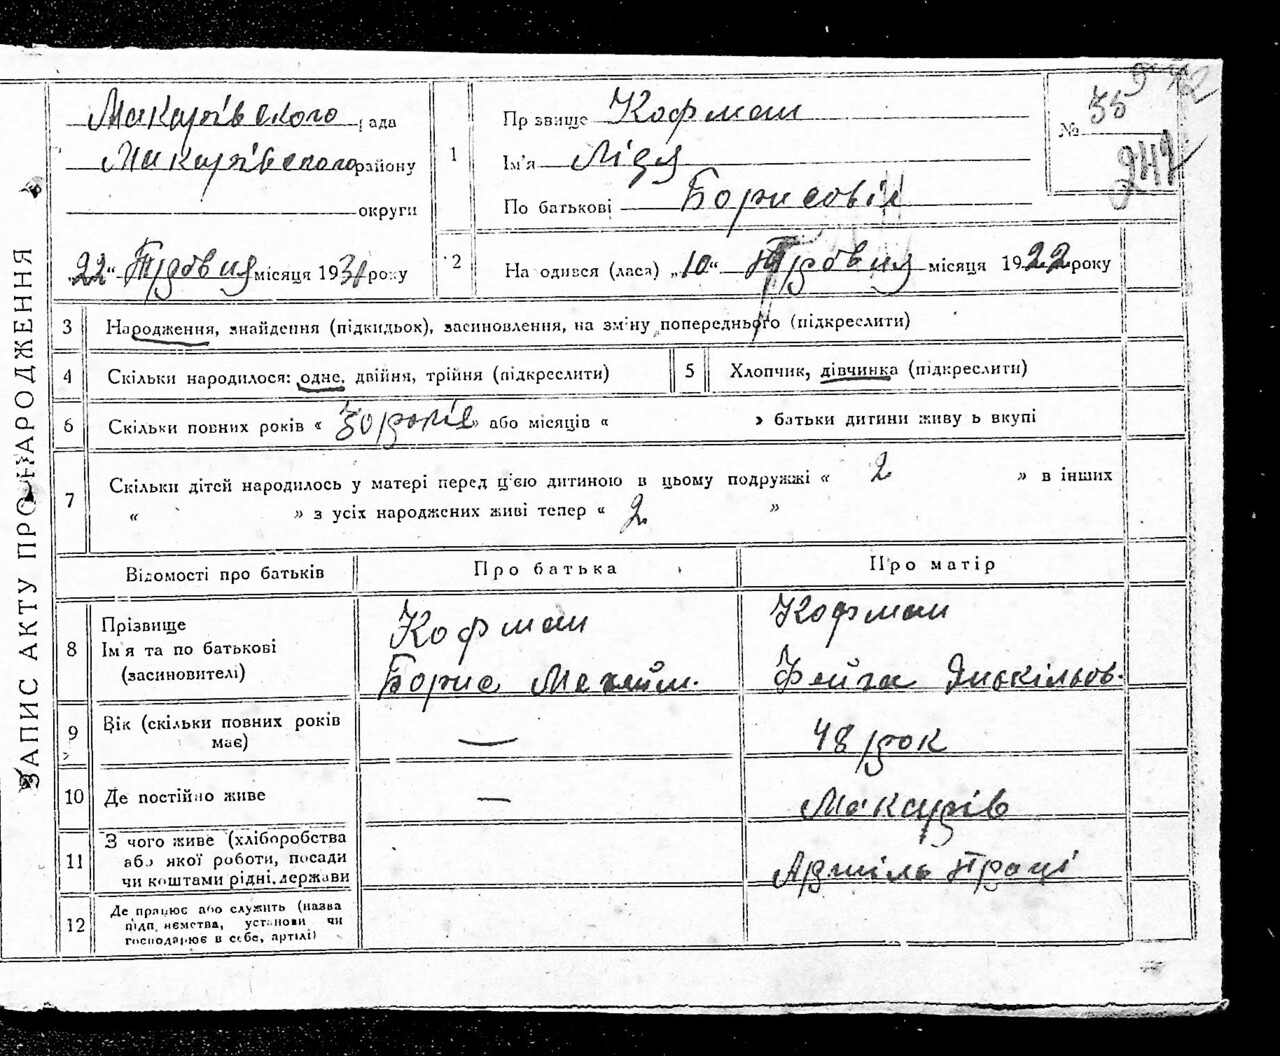 ЗАПИС АКТУ ПРО НАРОДЖЕННЯ
Макарівського рада
Макарівського району
округи
22 " Трӯвня місяця 1931 року
1
Пр звище Кофман
Ім'я Лідя
По батькові Борисовів
№ 35
242
2
На одився (лася) „10" місяця 1922 року
3 Народження, знайдення (підкидьок), засиновлення, на зміну попереднього (підкреслити)
4 Скільки народилося: одне, двійня, трійня (підкреслити)
5 Хлопчик, дівчинка (підкреслити)
6 Скільки повних років « 30 років » або місяців « » батьки дитини живу ь вкупі
7 Скільки дітей народилось у матері перед ц'єю дитиною в цьому подружжі « 2 » в інших
« » з усіх народжених живі тепер « 2 »
Відомості про батьків Про батька Про матір
8 Прізвище
Ім'я та по батькові
(засиновителі)
Кофман
Борис
Кофман
Фейга
9 Вік (скільки повних років
має)
—
48 рок
10 Де постійно живе — Макарів
11 З чого живе (хліборобства
або якої роботи, посади
чи коштами рідні, держави
Артіль Праці
12 Де працює або служить (назва
підп, ємства, установи чи
господарює в себе, артілі)